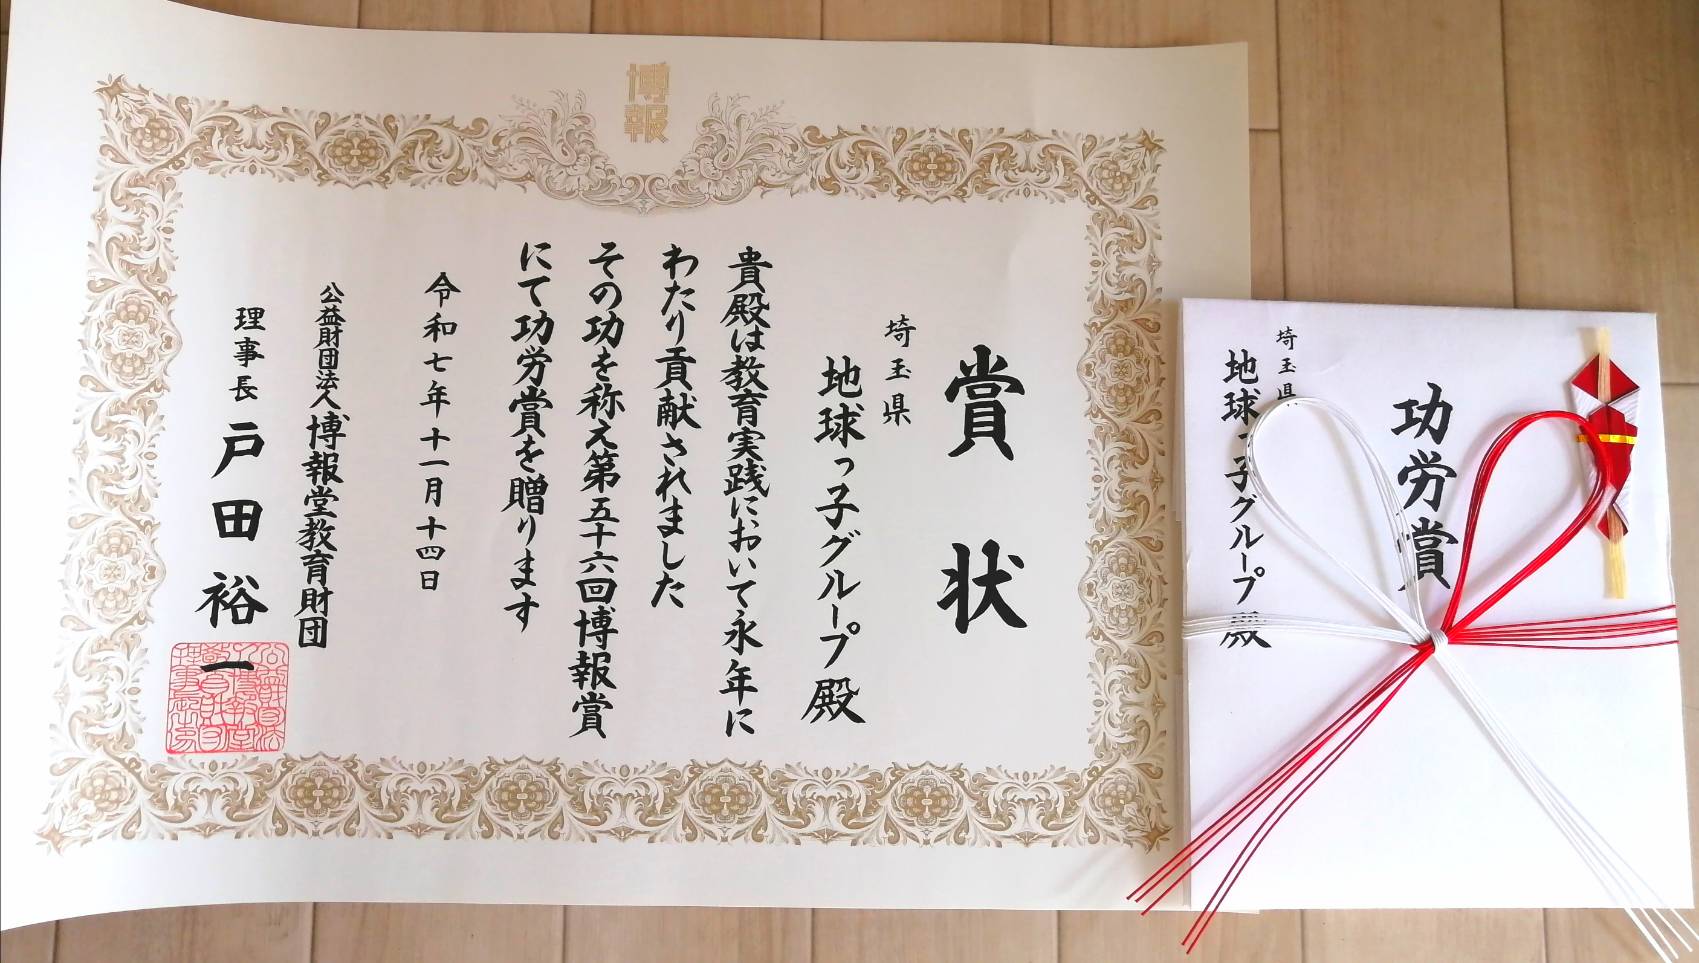 博報
賞状
埼玉県
地球っ子グループ殿
貴殿は教育実践において永年に
わたり貢献されました
その功を称え第五十六回博報賞
にて功労賞を贈ります
令和七年十一月十四日
公益財団法人博報堂教育財団
理事長 戸田裕一
功労賞
埼玉県
地球っ子グループ殿